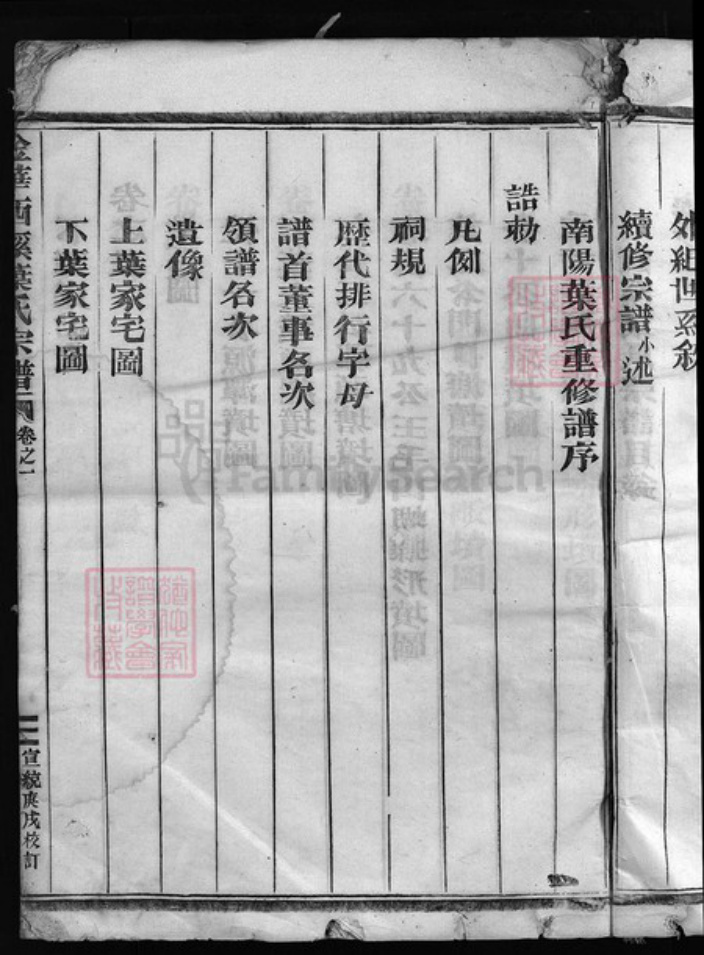 外紀世系敘
續修宗譜小述
南陽葉氏重修譜序
誥勅
凡例
祠規
歷代排行字母
譜首董事名次
領譜名次
遺像
上葉家宅圖
下葉家宅圖
金華西溪葉氏宗譜 圖 卷之一
宣統庚戌校訂
FamilySearch